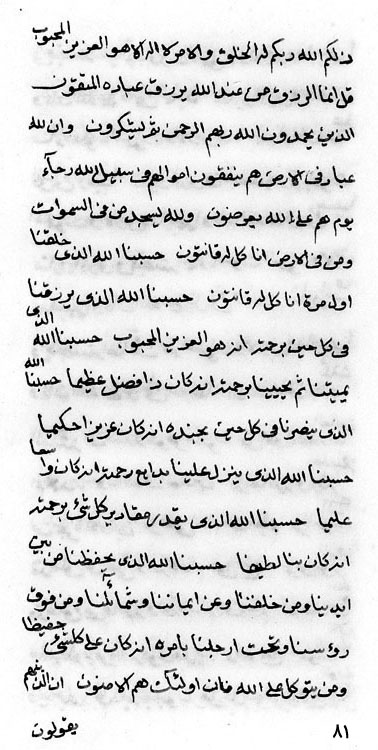 ذلكم الله ربكم له الخلق والامر لا اله الا هو العزيز المحبوب
قل انما الرزق من عند الله يرزق عباده المتقون
الذين يحمدون الله ربهم الرحمن ثم ليشكرون وان لله
عباد فى الارض هم ينفقون اموالهم فى سبيل الله رجاء
يوم هم على الله يعرضون ولله يسجد من فى السموات
ومن فى الارض انا كل له قانتون حسبنا الله الذى خلقنا
اول مرة انا كل له قانتون حسبنا الله الذى يرزقنا
فى كل حين برحمته انه هو العزيز المحبوب حسبنا الله الذى
يميتنا ثم يحيينا برحمته انه كان ذا فضل عظيما حسبنا الله
الذى ينصرنا فى كل حين بجنده انه كان عزيزا حكيما
حسبنا الله الذى ينزل علينا بدايع رحمته انه كان واسعا
عليما حسبنا الله الذى يقدر مقادير كل شئ برحمته
انه كان بنا لطيفا حسبنا الله الذى يحفظنا من بين
ايدينا ومن خلفنا وعن ايماننا وشمائلنا ومن فوق
رؤسنا وتحت ارجلنا بامره انه كان على كلشئ حفيظا
ومن يتوكل على الله فان اولئك هم الامنون ان الذينهم
يقولون
٨١